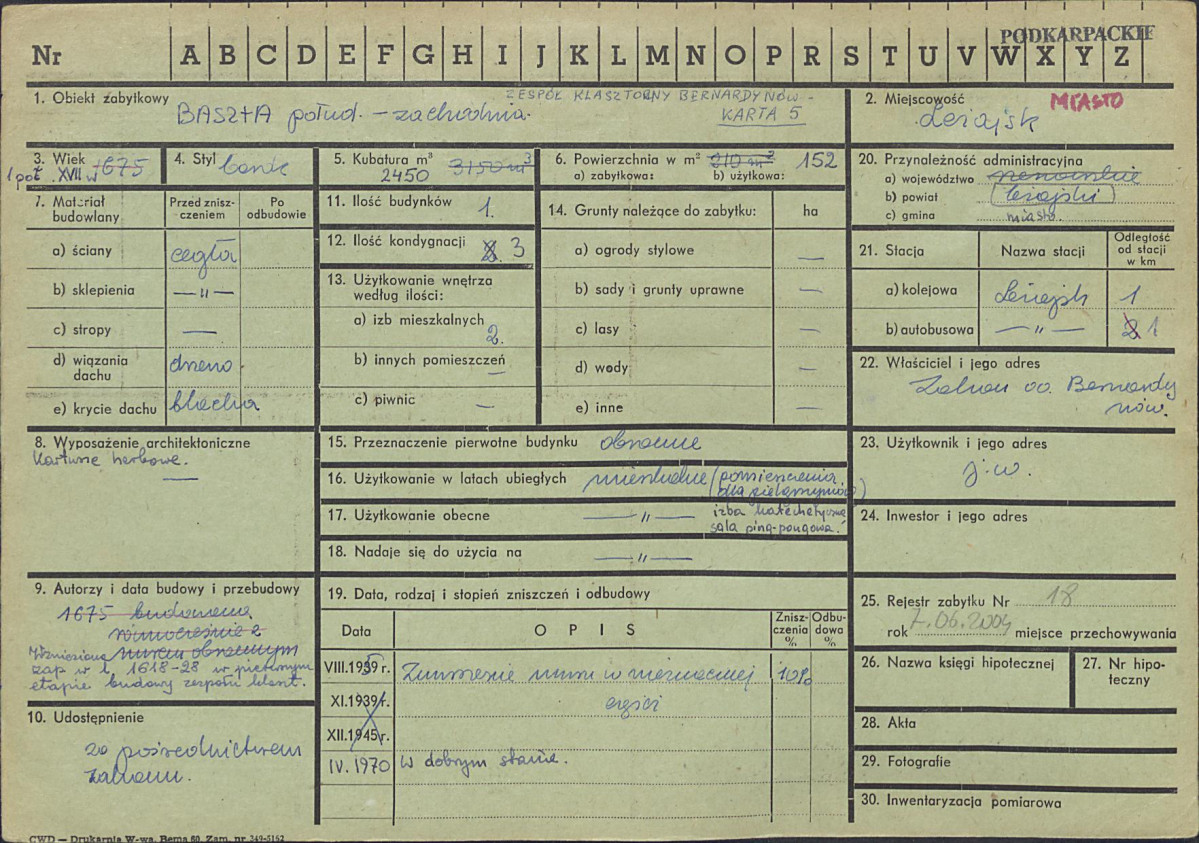 PODKARPACKIE
Nr A B C D E F G H I J K L M N O P R S T U V W X Y Z
1. Obiekt zabytkowy
ZESPÓŁ KLASZTORNY BERNARDYNÓW -
BASZTA połud. - zachodnia.
KARTA 5
2. Miejscowość
MIASTO
Leżajsk
3. Wiek 1675
1 poł. XVII w
4. Styl barok
5. Kubatura m³
2450 3150 m³
6. Powierzchnia w m² 210 m² 152
a) zabytkowa: b) użytkowa:
20. Przynależność administracyjna
a) województwo rzeszowskie
b) powiat (leżajski)
c) gmina miasto.
7. Materiał budowlany
Przed zniszczeniem
Po odbudowie
a) ściany cegła
b) sklepienia — " —
c) stropy —
d) wiązania dachu drewno
e) krycie dachu blacha
11. Ilość budynków 1.
12. Ilość kondygnacji 3
13. Użytkowanie wnętrza
według ilości:
a) izb mieszkalnych
2.
b) innych pomieszczeń —
c) piwnic —
14. Grunty należące do zabytku: ha
a) ogrody stylowe —
b) sady i grunty uprawne —
c) lasy —
d) wody —
e) inne —
21. Stacja
Nazwa stacji
Odległość
od stacji
w km
a) kolejowa Leżajsk 1
b) autobusowa — " — 2 1
22. Właściciel i jego adres
Zakon oo. Bernardy
nów.
8. Wyposażenie architektoniczne
Kartusze herbowe.
—
15. Przeznaczenie pierwotne budynku obronne
16. Użytkowanie w latach ubiegłych mieszkalne (pomieszczenia
dla pielgrzymów)
17. Użytkowanie obecne — " — izba katechetyczna
sala ping-pongowa.
18. Nadaje się do użycia na — " —
23. Użytkownik i jego adres
j.w.
24. Inwestor i jego adres
9. Autorzy i data budowy i przebudowy
1675 budowana
równocześnie z
Wzniesiona murem obronnym
zap w l. 1618-28 w pierwszym
etapie budowy zespołu klaszt.
19. Data, rodzaj i stopień zniszczeń i odbudowy
Data
OPIS
Zniszczenia %
Odbudowa %
VIII.1939 r. Zniszczenie muru w nieznacznej 10%
XI.1939 r. części
XII.1945 r.
IV. 1970 W dobrym stanie.
10. Udostępnienie
za pośrednictwem
zakonu.
25. Rejestr zabytku Nr 18
rok 7.06.2004 miejsce przechowywania
26. Nazwa księgi hipotecznej
27. Nr hipoteczny
28. Akta
29. Fotografie
30. Inwentaryzacja pomiarowa
CWD — Drukarnia W-wa, Bema 60. Zam. nr 349-5162